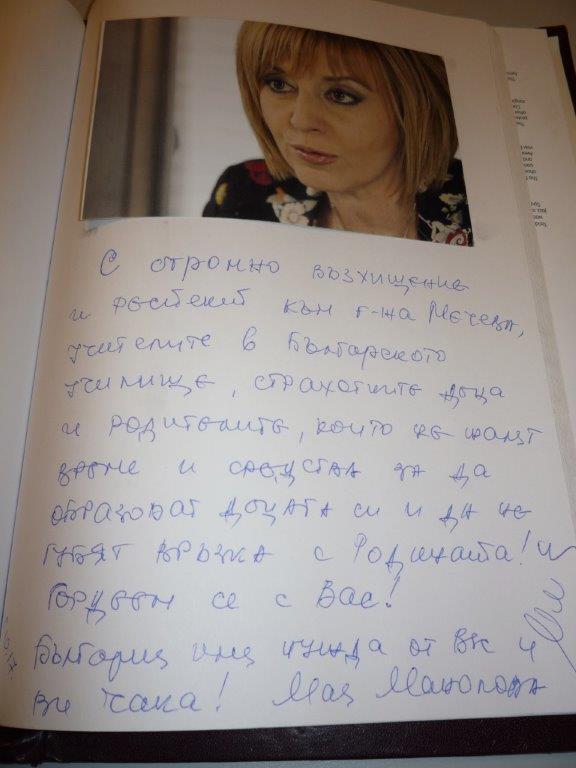 С огромно възхищение
и респект към г-жа Мечева,
учителите в Българското
училище, страхотните деца
и родителите, които не жалят
време и средства за да
образоват децата си и да не
губят връзка с Родината! и
Гордеем се с Вас!
България има нужда от Вас и
Ви чака! Мая Манолова